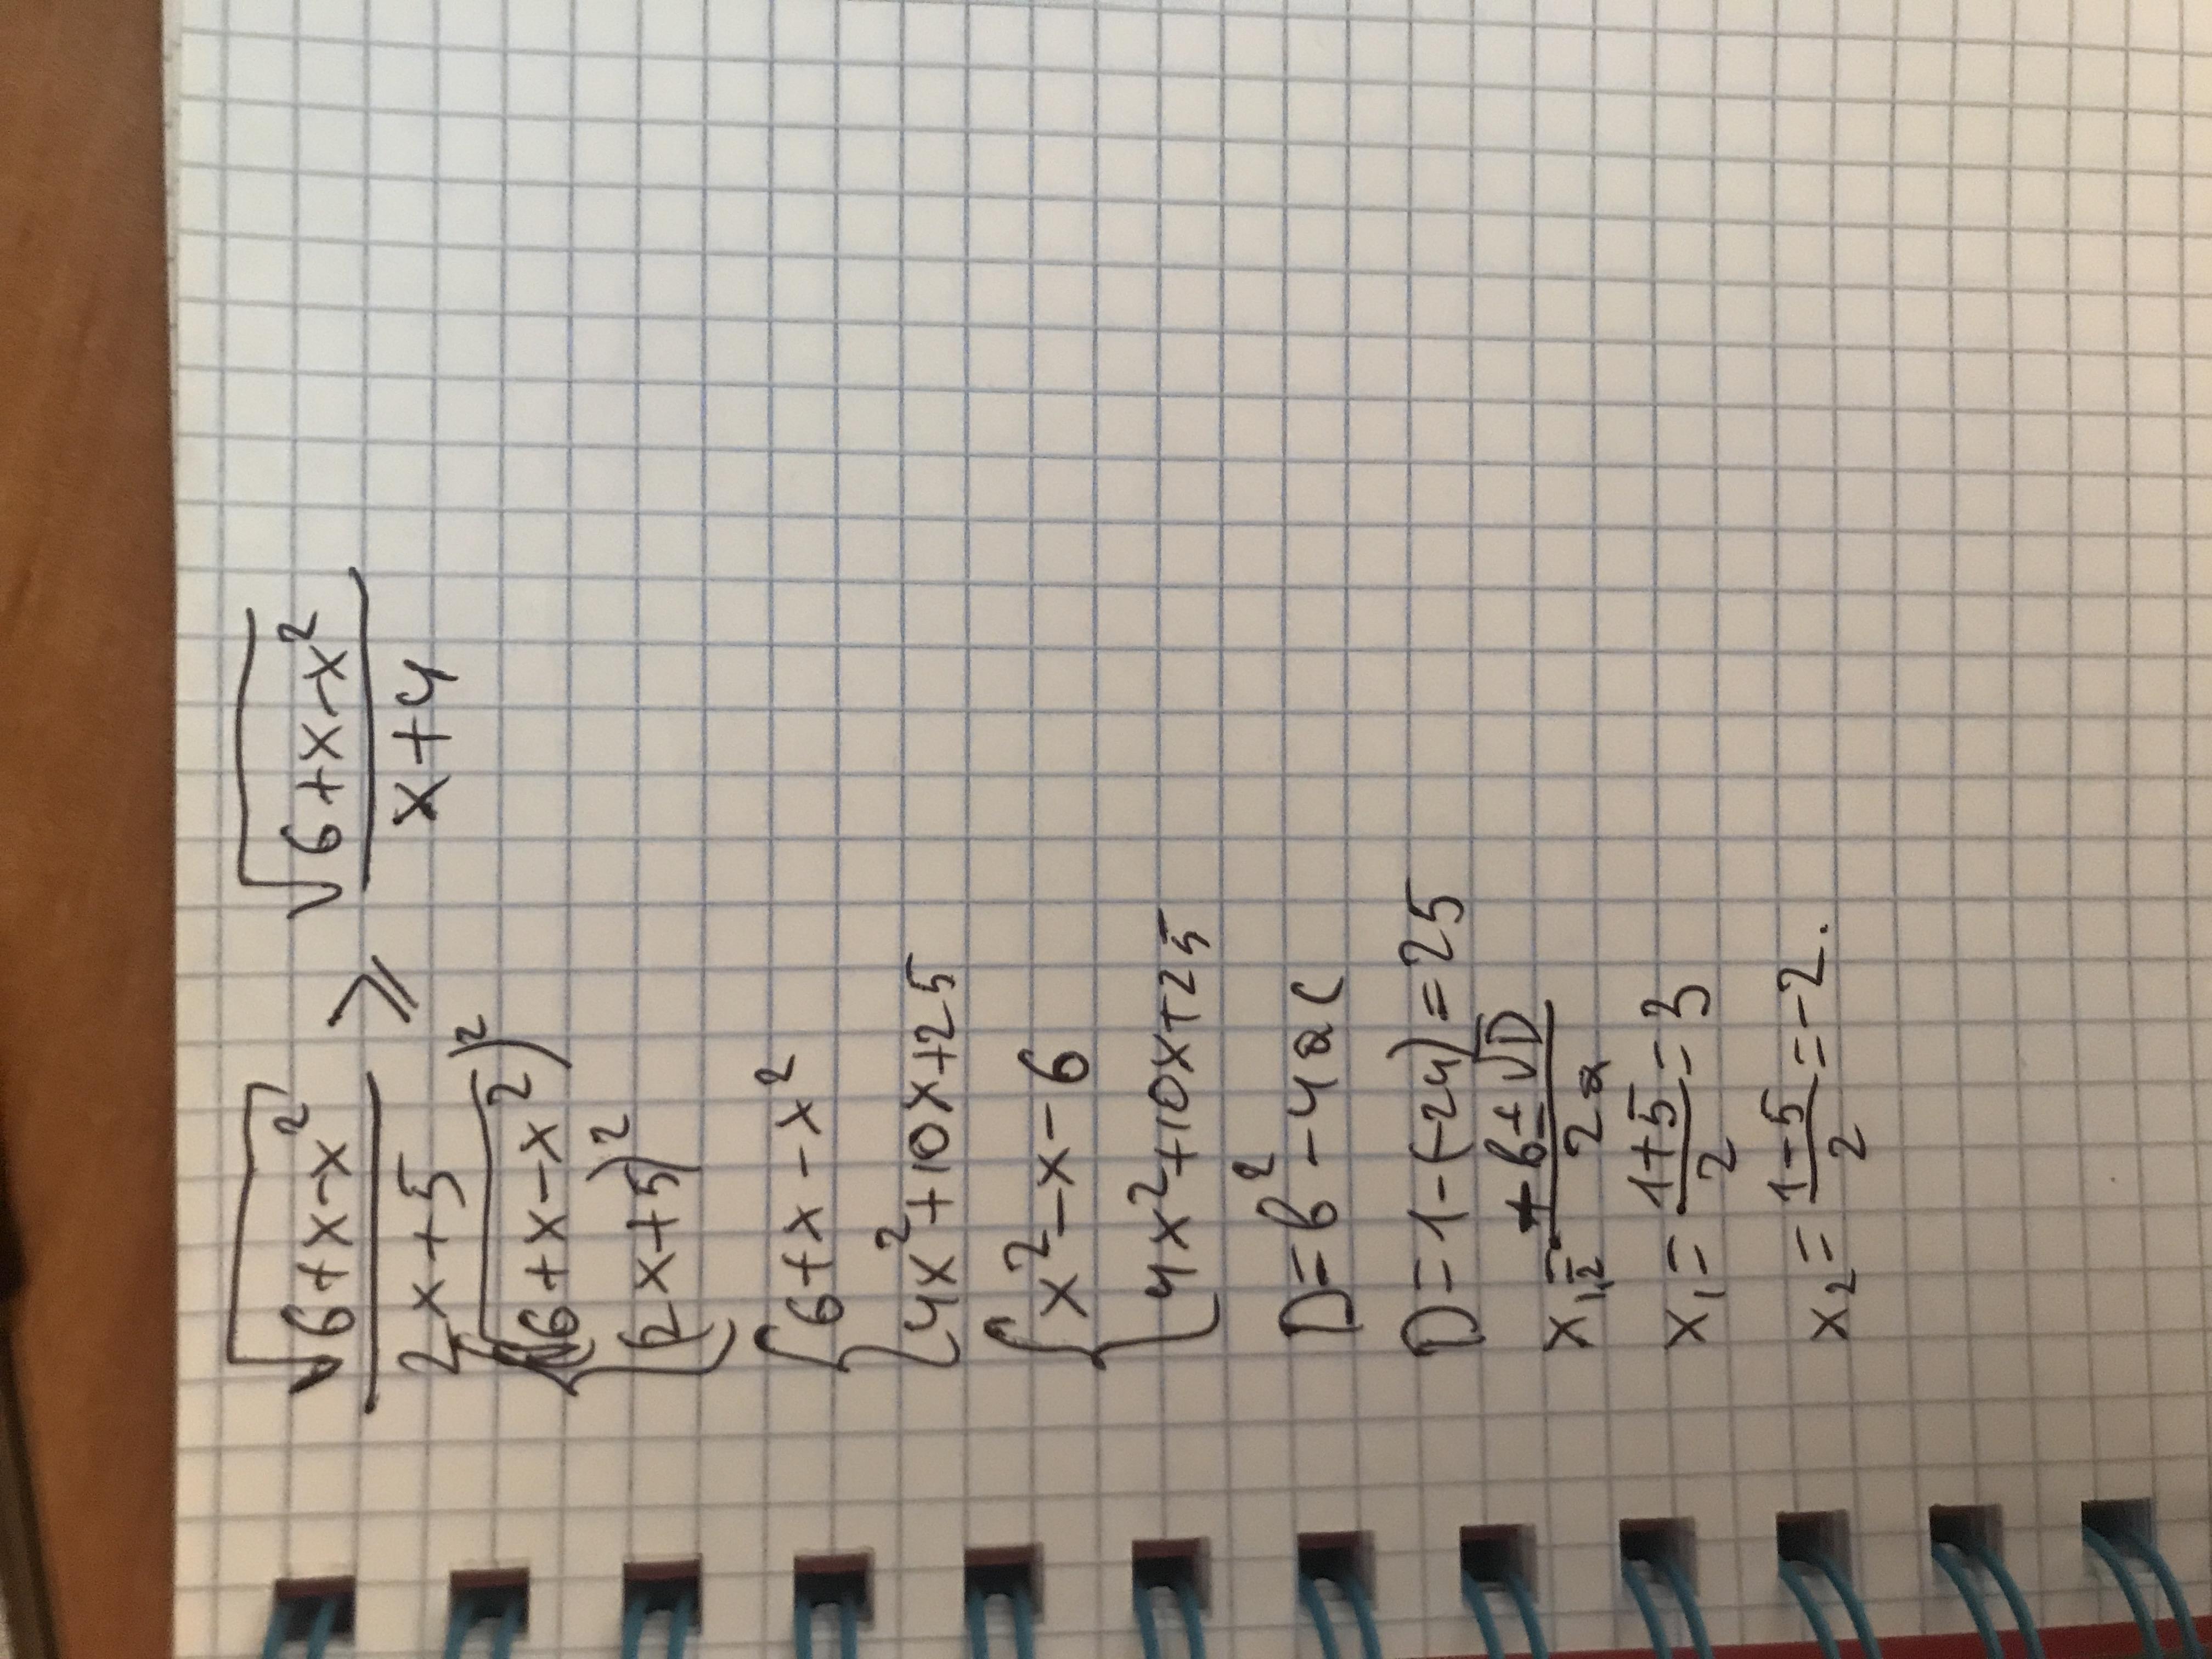 √(6+x-x²)/(2x+5) ≥ √(6+x-x²)/(x+4)
{(√(6+x-x²))²
{(2x+5)²
{6+x-x²
{4x²+10x+25
{x²-x-6
{4x²+10x+25
D=b²-4ac
D=1-(-24)=25
x₁,₂=(-b±√D)/2a
x₁=(1+5)/2=3
x₂=(1-5)/2=-2.